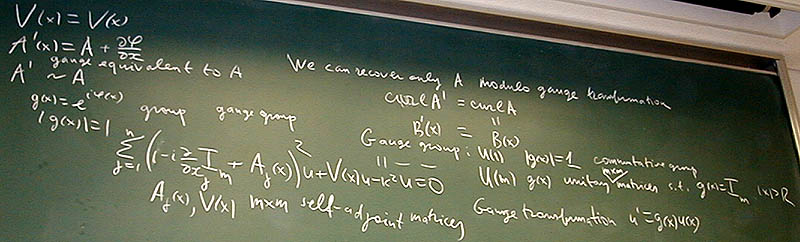 V(x) = V(x)
A'(x) = A + ∂φ/∂x
gauge equivalent to A
A' ~ A
g(x) = e^{iφ(x)} group gauge group
|g(x)| = 1
∑_{j=1}^{n} (-i ∂/∂x_j I_m + A_j(x))^2 u + V(x)u - k^2 u = 0
A_j(x), V(x) m×m self-adjoint matrices
We can recover only A modulo gauge transformation
curl A' = curl A
B'(x) = B(x)
Gauge group: U(1) |g(x)| = 1 commutative group
U(m) g(x) m×m unitary matrices s.t. g(x) = I_m |x| > R
Gauge transformation u' = g(x)u(x)